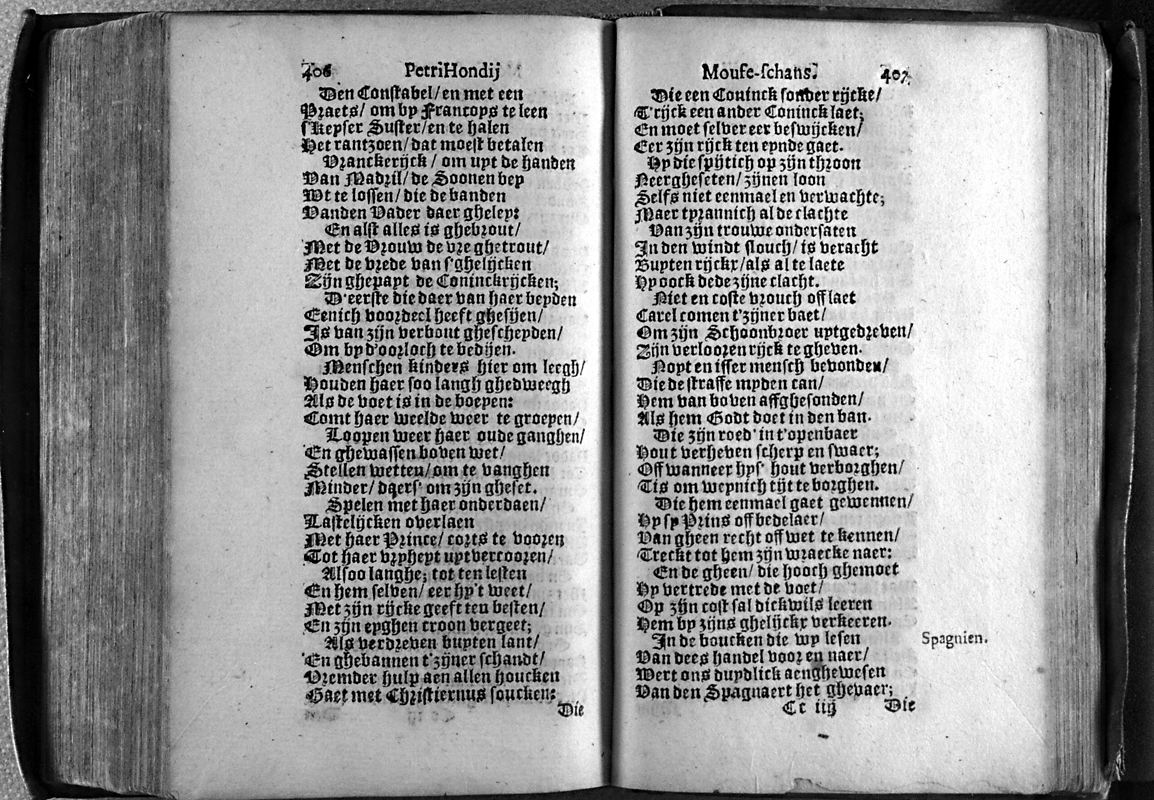 406 PetriHondij
Den Constabel/en met een
Praets/ om by Francoys te leen
s'Keysers Suster/en te halen
Het rantzoen/dat moest betalen
Vranckerijck/ om uyt de handen
Van Madril/de Soonen bey
Wt te lossen/die de banden
Vanden Vader daer gheley:
En alst alles is ghebrout/
Met de Vrouw de vre ghetrout/
Met de vrede van s'ghelijcken
Zijn ghepayt de Coninckrijcken;
D'eerste die daer van haer beyden
Eenich voordeel heeft ghesijen/
Is van zijn verbont ghescheyden/
Om by d'oorloch te bedijen.
Menschen kinders hier om leegh/
Houden haer soo langh ghedweegh
Als de voet is in de boeyen:
Comt haer weelde weer te groeyen/
Loopen weer haer oude ganghen/
En ghewassen boven wet/
Stellen wetten/om te vanghen
Minder/ daers' om zijn gheset.
Spelen met haer onderdaen/
Lastelijcken overlaen
Met haer Prince/ corts te vooren
Tot haer vryheyt uytvercooren/
Alsoo langhe; tot ten lesten
En hem selven/ eer hy't weet/
Met zijn rijcke geeft ten besten/
En zijn eyghen croon vergeet;
Als verdreven buyten lant/
En ghebannen t'zijner schandt/
Vremder hulp aen allen houcken
Gaet met Christiernus soucken:
Die
Mouse-schans. 407
Die een Coninck sonder rijcke/
T'rijck een ander Coninck laet;
En moet selver eer beswijcken/
Eer zijn rijck ten eynde gaet.
Hy die spijtich op zijn throon
Neergheseten/ zijnen loon
Selfs niet eenmael en verwachte;
Maer tyrannich al de clachte
Van zijn trouwe ondersaten
In den windt slouch/ is veracht
Buyten rijckx/als al te laete
Hy oock dede zijne clacht.
Niet en coste vrouch off laet
Carel comen t'zijner baet/
Om zijn Schoonbroer uytgedreven/
Zijn verlooren rijck te gheven.
Noyt en isser mensch bevonden/
Die de straffe myden can/
Hem van boven affghesonden/
Als hem Godt doet in den ban.
Die zijn roed' in t'openbaer
Hout verheven scherp en swaer;
Off wanneer hys' hout verborghen/
Tis om weynich tijt te borghen.
Die hem eenmael gaet gewennen/
Hy sy Prins off bedelaer/
Van gheen recht off wet te kennen/
Treckt tot hem zijn wraecke naer:
En de gheen/ die hooch ghemoet
Hy vertrede met de voet/
Op zijn cost sal dickwils leeren
Hem by zijns ghelijckx verkeeren.
In de boucken die wy lesen
Spagnien.
Van dees handel voor en naer/
Wert ons duydlick aenghewesen
Van den Spagnaert het ghevaer;
Cc iiij Die